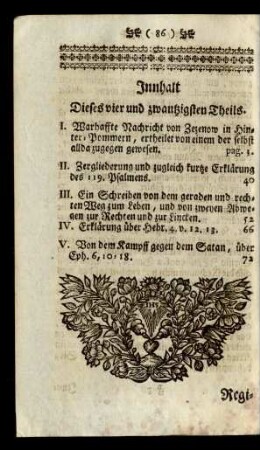 ( 86 )
Innhalt
Dieses vier und zwantzigsten Theils.
I. Warhaffte Nachricht von Zezenow in Hin-
ter-Pommern, ertheilet von einem der selbst
allda zugegen gewesen. pag. 3.
II. Zergliederung und zugleich kurtze Erklärung
des 119. Psalmens. 40
III. Ein Schreiben von dem geraden und rech-
ten Weg zum Leben, und von zweyen Abwe-
gen zur Rechten und zur Lincken. 52
IV. Erklärung über Hebr. 4. v. 12. 13. 66
V. Von dem Kampff gegen dem Satan, über
Eph. 6, 10-18. 72
IHS
Regi-